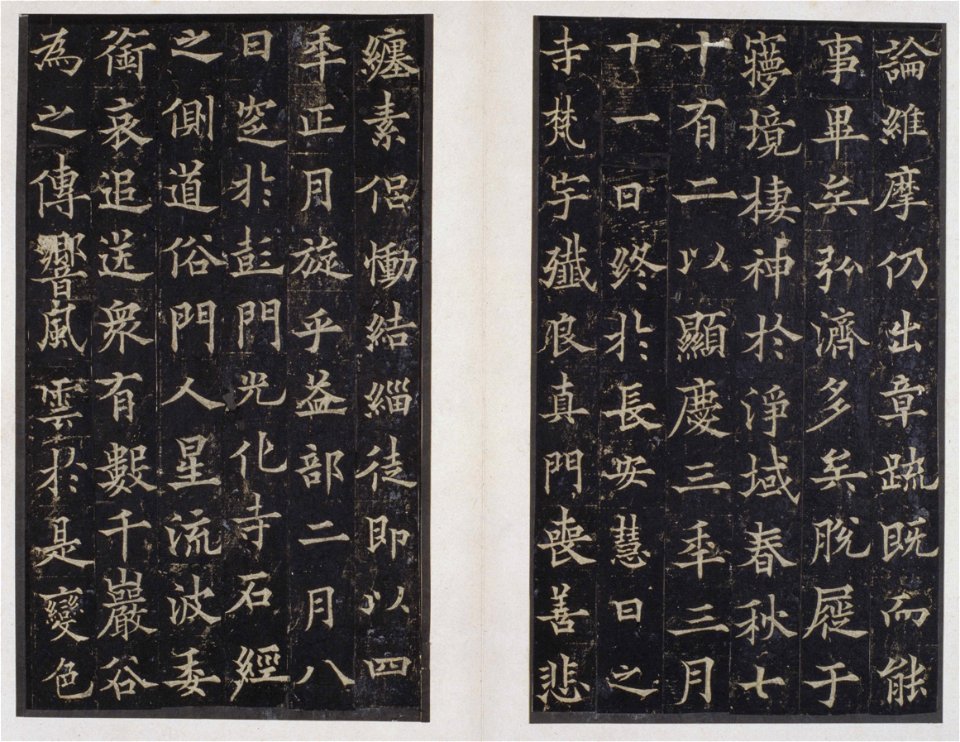 論維摩仍出章疏既而能
事畢矣弘濟多矣脫屣于
夢境棲神於淨域春秋七
十有二以顯慶三年三月
十一日終於長安慧日之
寺梵宇殲良真門喪善悲
纏素侶慟結緇徒即以四
年正月旋乎益部二月八
日窆於彭門光化寺石經
之側道俗門人星流波委
銜哀追送眾有數千巖谷
為之傳響風雲於是變色